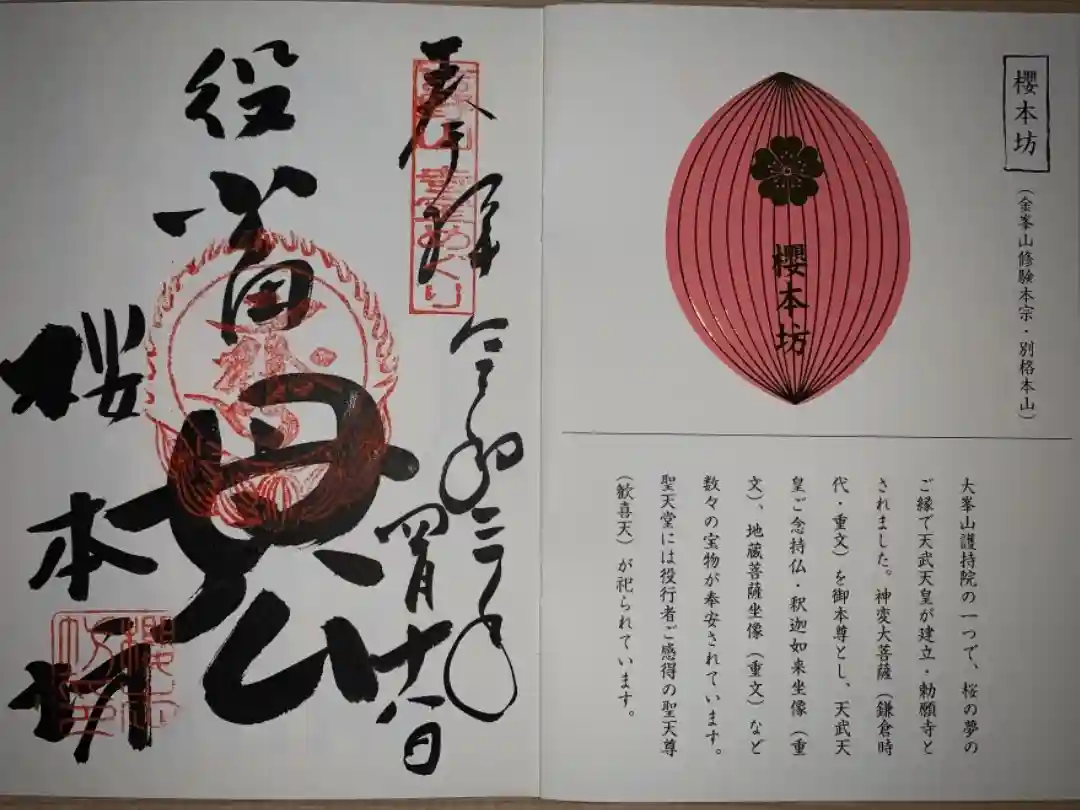 櫻本坊
(金峯山修験本宗・別格本山)
櫻本坊
大峯山護持院の一つで、桜の夢の
ご縁で天武天皇が建立・勅願寺と
されました。神変大菩薩(鎌倉時
代・重文)を御本尊とし、天武天
皇ご念持仏・釈迦如来坐像(重
文)、地蔵菩薩坐像(重文)など
数々の宝物が奉安されています。
聖天堂には役行者ご感得の聖天尊
(歓喜天)が祀られています。
奉拝
めぐり
令和二年
役
櫻本坊